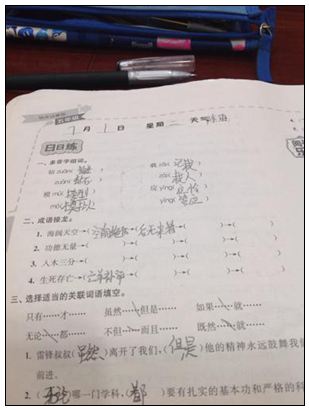 五年级
7月1日 星期二 天气
日日练
一、多音字组词。
钻 zuān 载 zǎi 记载
zuàn 钻石 zài 载人
模 mó 模型 应 yīng 应该
mú 模样 yìng
二、成语接龙。
1. 海阔天空→( )→( )→( )→( )
2. 功德无量→( )→( )→( )→( )
3. 入木三分→( )→( )→( )→( )
4. 生死存亡→(亡羊补牢)→( )→( )→( )
三、选择适当的关联词语填空。
只有……才…… 虽然……但是…… 如果……就……
无论……都…… 不但……而且…… 既然……就……
1. 雷锋叔叔(虽然)离开了我们,(但是)他的精神永远鼓舞我们
前进。
2. (无论)哪一门学科,(都)要有扎实的基本功和严格的科